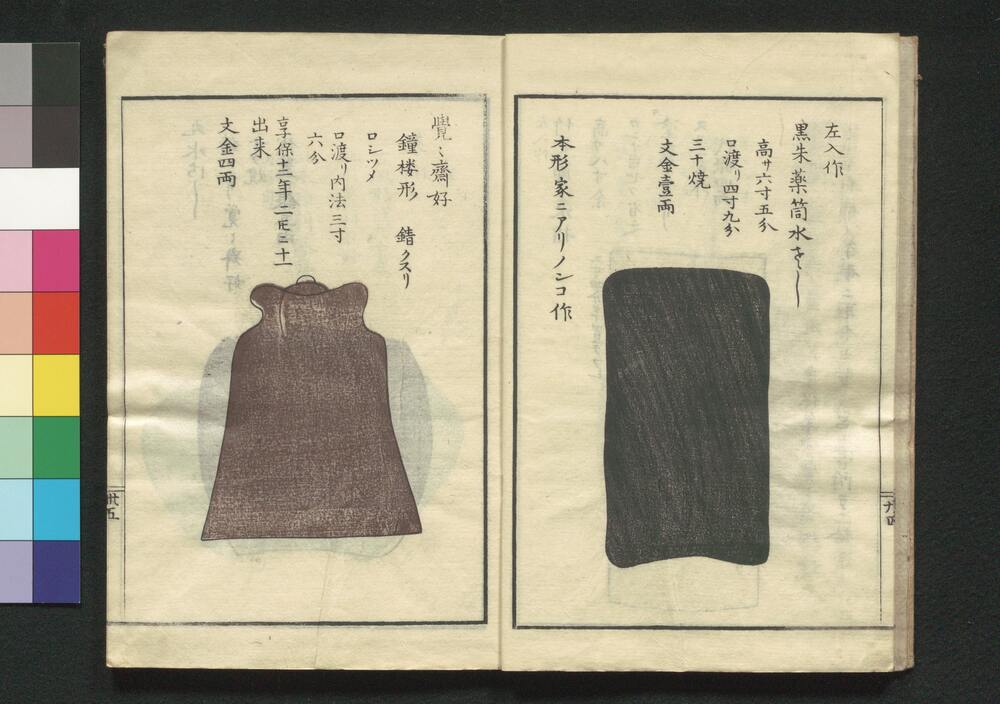 左入作
黒朱薬筒水さし
高サ六寸五分
口渡リ四寸九分
三十焼
文金壹両
本形家ニアリノンコ作
廿四
覺〻齋好
鐘楼形 錆クスリ
ロシツメ
口渡リ内法三寸
六分
享保十三年二月二十一
出来
文金四両
廿五